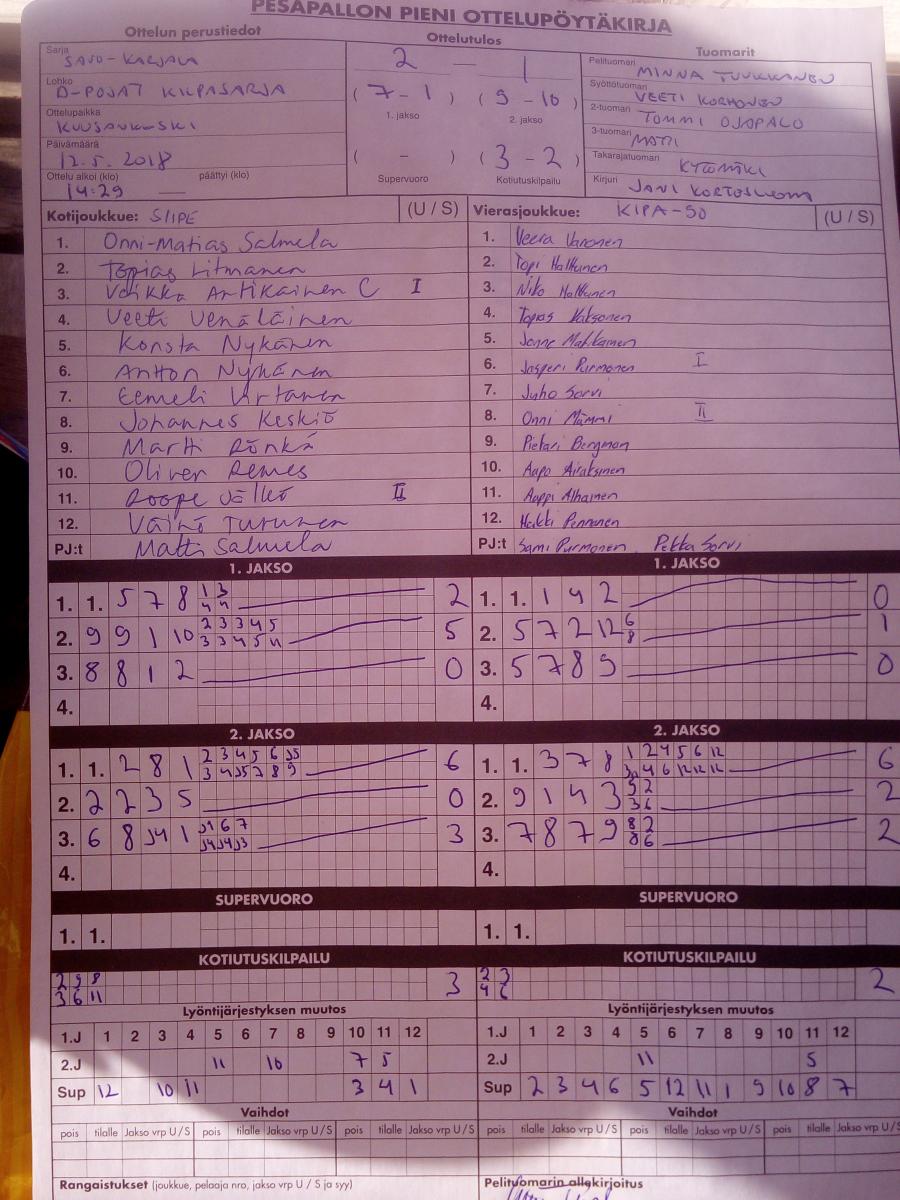 PESÄPALLON PIENI OTTELUPÖYTÄKIRJA
Ottelun perustiedot
Ottelutulos
Tuomarit
Sarja
SAVO-KARJALA
Lohko
D-POJAT KILPASARJA
Ottelupaikka
KUUSANKOSKI
Päivämäärä
12.5.2018
Ottelu alkoi (klo) päättyi (klo)
14:29 —
2 — 1
(7-1) (9-10)
1. jakso 2. jakso
( - ) (3-2)
Supervuoro Kotiutuskilpailu
Pelituomari
MINNA TUUKKANEN
Syöttötuomari
VEETI KORHONEN
2-tuomari
TOMMI OJAPALO
3-tuomari
MATTI
Takarajatuomari
KYTÖMÄKI
Kirjuri
JANI
Kotijoukkue: SIIPE (U / S)
1. Onni-Matias Salmela
2. Topias Litmanen
3. Veikka Antikainen C I
4. Veeti Venäläinen
5. Konsta Nykänen
6. Antton Nykänen
7. Eemeli Virtanen
8. Johannes Keskiö
9. Martti Rönkä
10. Oliver Remes
11. Roope Jölkö II
12. Väinö Turunen
PJ:t Matti Salmela
Vierasjoukkue: KIPA-50 (U / S)
1. Veera Varonen
2. Topi Halttunen
3. Niko Halttunen
4. Topias
5. Jonne
6. Jasperi Purmonen I
7. Juho Sorvi
8. Onni Mämmi II
9. Pietari Bergman
10. Aapo Airaksinen
11. Aappi Alhainen
12. Heikki Pennanen
PJ:t Sami Purmonen, Pekka Sorvi
1. JAKSO
1. 1. 5 7 8 1 3 2
4 4
2. 9 9 1 10 2 3 3 4 5 5
3 3 4 5 4
3. 8 8 1 2 0
4.
1. JAKSO
1. 1. 1 4 2 0
2. 5 7 2 12 6 1
8
3. 5 7 8 9 0
4.
2. JAKSO
1. 1. 2 8 1 2 3 4 5 6 J5 6
3 4 J5 7 8 9
2. 2 2 3 5 0
3. 6 8 J4 1 J1 6 7 3
J4 J4 J3
4.
2. JAKSO
1. 1. 3 7 8 1 2 4 5 6 12 6
4 6 12 12 12
2. 9 1 4 3 5 2 2
3 6
3. 7 8 7 9 8 2 2
8 6
4.
SUPERVUORO
1. 1.
SUPERVUORO
1. 1.
KOTIUTUSKILPAILU
2 9 8 3
3 6 11
KOTIUTUSKILPAILU
2 2
4
Lyöntijärjestyksen muutos
1.J 1 2 3 4 5 6 7 8 9 10 11 12
2.J 11 10 7 5
Sup 12 10 11 3 4 1
Lyöntijärjestyksen muutos
1.J 1 2 3 4 5 6 7 8 9 10 11 12
2.J 11 5
Sup 2 3 4 6 5 12 11 1 9 10 8 7
Vaihdot
pois tilalle Jakso vrp U / S pois tilalle Jakso vrp U / S pois tilalle Jakso vrp U / S
Vaihdot
pois tilalle Jakso vrp U / S pois tilalle Jakso vrp U / S pois tilalle Jakso vrp U / S
Rangaistukset (joukkue, pelaaja nro, jakso vrp U / S ja syy)
Pelituomarin allekirjoitus